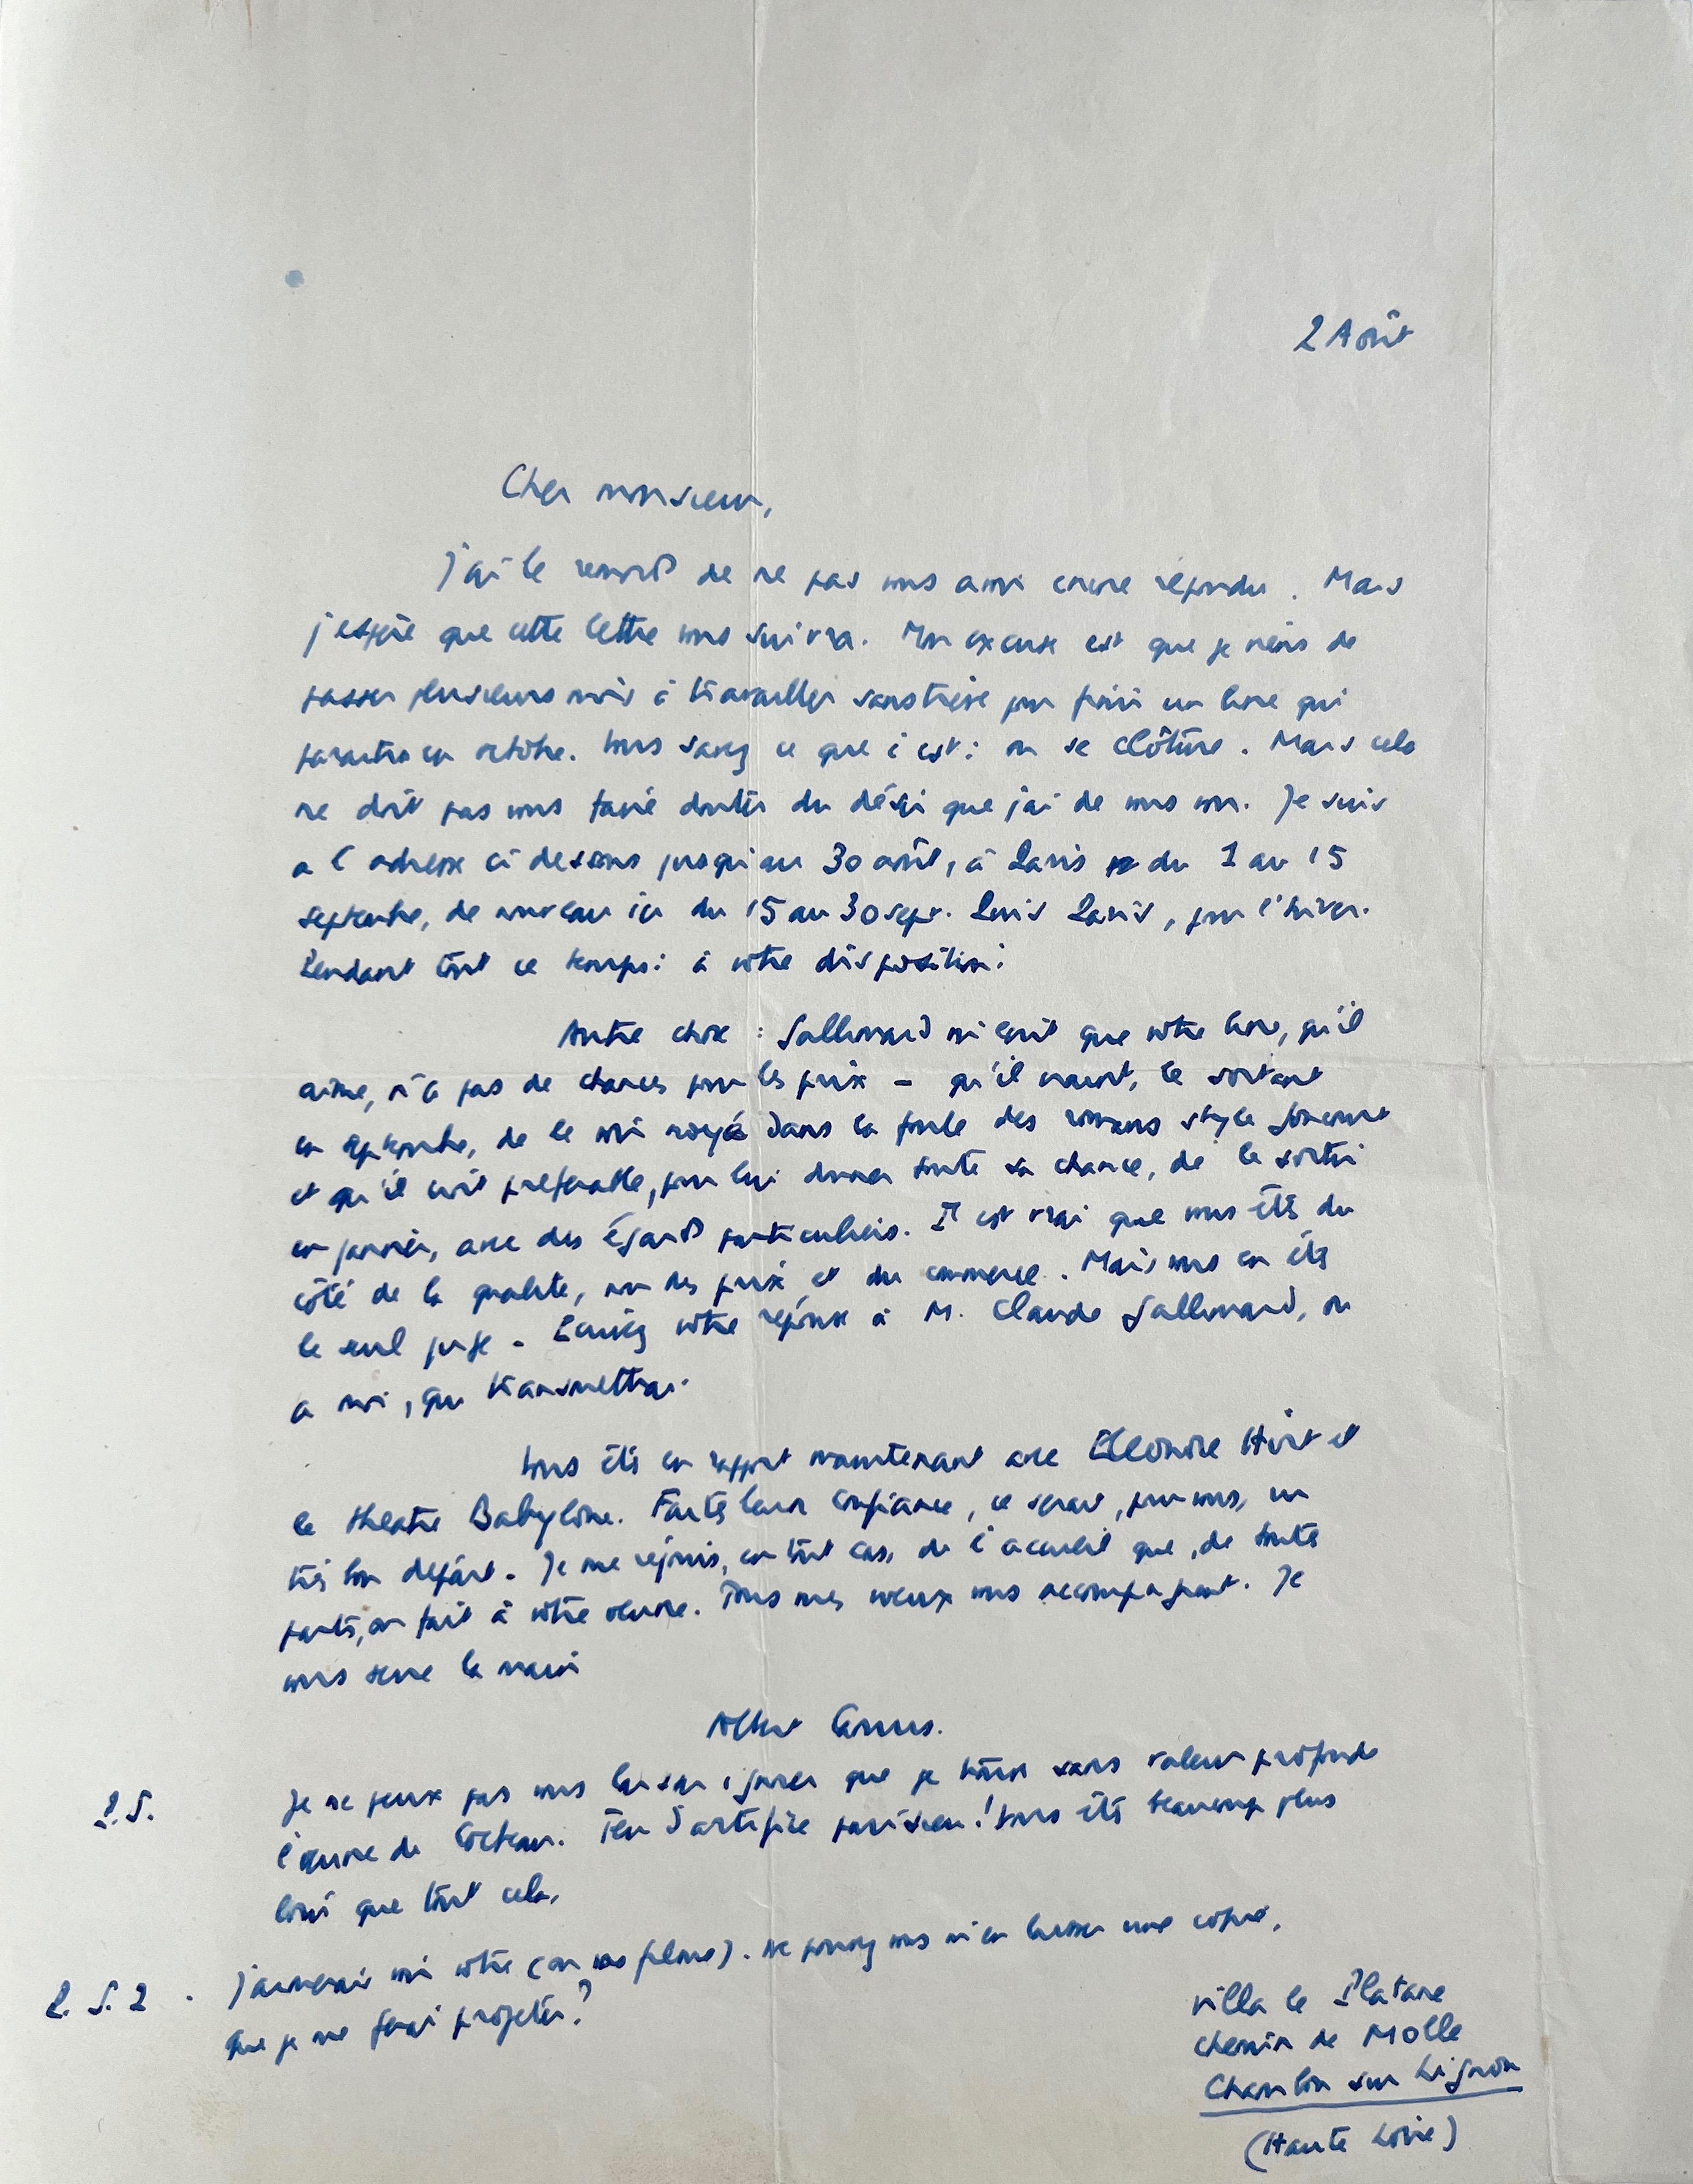 2 Août
Cher monsieur,
J'ai le remords de ne pas vous avoir encore répondu. Mais
j'espère que cette lettre vous suivra. Mon excuse est que je viens de
passer plusieurs mois à travailler sans trève pour finir un livre qui
paraitra en octobre. Vous savez ce que c'est : on se clôture. Mais cela
ne doit pas vous faire douter du désir que j'ai de vous voir. Je suis
a l'adresse ci dessous jusqu'au 30 août, à Paris du 1 au 15
septembre, de nouveau ici du 15 au 30 sept. Puis Paris, pour l'hiver.
Pendant tout ce temps : à votre disposition.
Autre chose : Gallimard m'écrit que votre livre, qu'il
aime, n'a pas de chances pour les prix - qu'il craint, le sortant
en septembre, de le voir noyé dans la foule des romans style Goncourt
et qu'il croit préférable, pour lui donner toute sa chance, de le sortir
en janvier, avec des égards particuliers. Il est vrai que vous êtes du
côté de la qualité, non des prix et du commerce. Mais vous en êtes
le seul juge - Ecrivez votre réponse à M. Claude Gallimard, ou
a moi, qui transmettrai.
Vous êtes en rapport maintenant avec Eléonore Hirt et
le théatre Babylone. Faites leur confiance, ce serait, pour vous, un
très bon départ. Je me réjouis, en tout cas, de l'accueil que, de toutes
parts, on fait à votre oeuvre. Tous mes voeux vous accompagnent. Je
vous serre la main
Albert Camus.
P.S. Je ne peux pas vous laisser ignorer que je trouve sans valeur profonde
l'œuvre de Cocteau. Feu d'artifice parisien ! Vous êtes beaucoup plus
loin que tout cela.
P.S. 2 - J'aimerais voir votre (ou vos films). Ne pouvez vous m'en laisser une copie,
que je me ferai projeter ?
villa le Platane
chemin de Molle
Chambon sur Lignon
(Haute Loire)